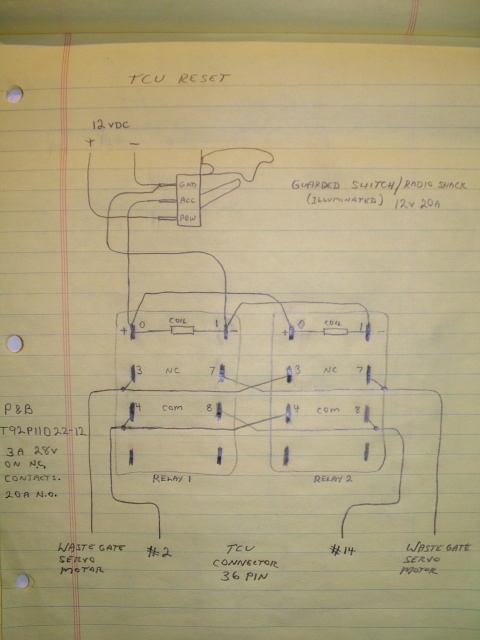 TCU RESET
12 VDC
+ -
GND
ACC
POW
GUARDED SWITCH/RADIO SHACK
(ILLUMINATED) 12V 20A
+ 0 COIL 1 - + 0 COIL 1 -
3 NC 7 3 NC 7
4 COM 8 4 COM 8
RELAY 1 RELAY 2
P&B
T92P11D22-12
3A 28V
ON NC
CONTACTS.
20A N.O.
WASTEGATE
SERVO
MOTOR
#2
TCU
CONNECTOR
36 PIN
#14
WASTEGATE
SERVO
MOTOR